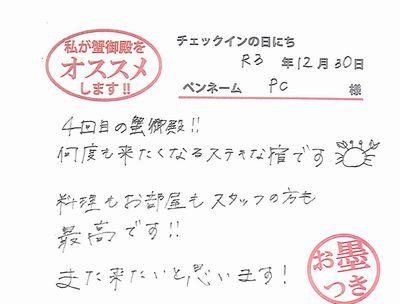 私が蟹御殿を
オススメ
します!!
チェックインの日にち
R3 年 12月 30日
ペンネーム PC 様
4回目の蟹御殿!!
何度も来たくなるステキな宿です
料理もお部屋もスタッフの方も
最高です!!
また来たいと思います!
お墨
つき